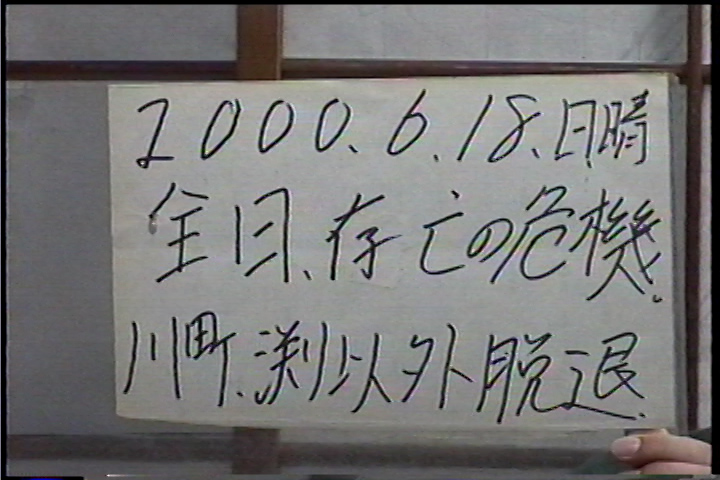 2000.6.18.日晴
全日、存亡の危機.
川町、渕以外脱退.